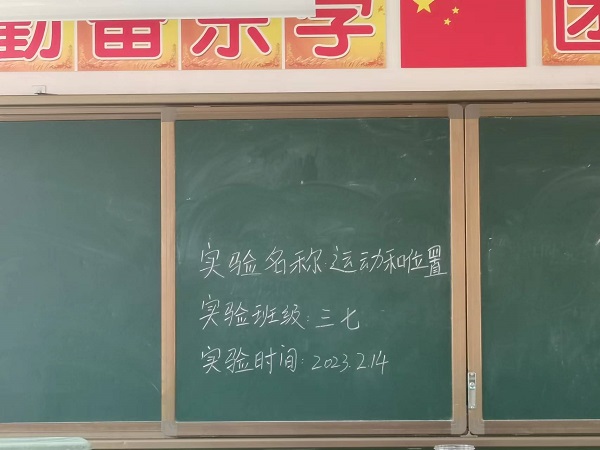 勤奋乐学 团
实验名称:运动和位置
实验班级:三七
实验时间:2023.2.14